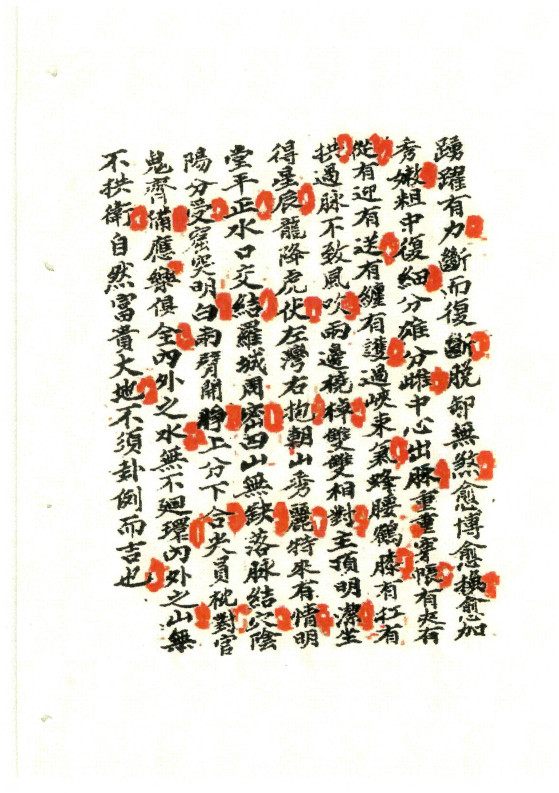 踴躍有力斷而復斷脫卸無煞愈博愈換愈加
秀嫩粗中復細分雄分雌中心出脉重重穿帳有夾有
從有迎有送有纏有護過峽束氣蜂腰鶴膝有扛有
拱過脉不致風吹兩邊橈棹雙雙相對主頂明潔坐
得星辰龍降虎伏左灣右抱朝山秀麗特來有情明
堂平正水口交結羅城周密四山無缺落脉結穴陰
陽分受窩突明白兩臂開睜上分下合尖員枕對官
鬼齊備應樂俱全內外之水無不迴環內外之山無
不拱衛自然富貴大地不須卦例而吉也